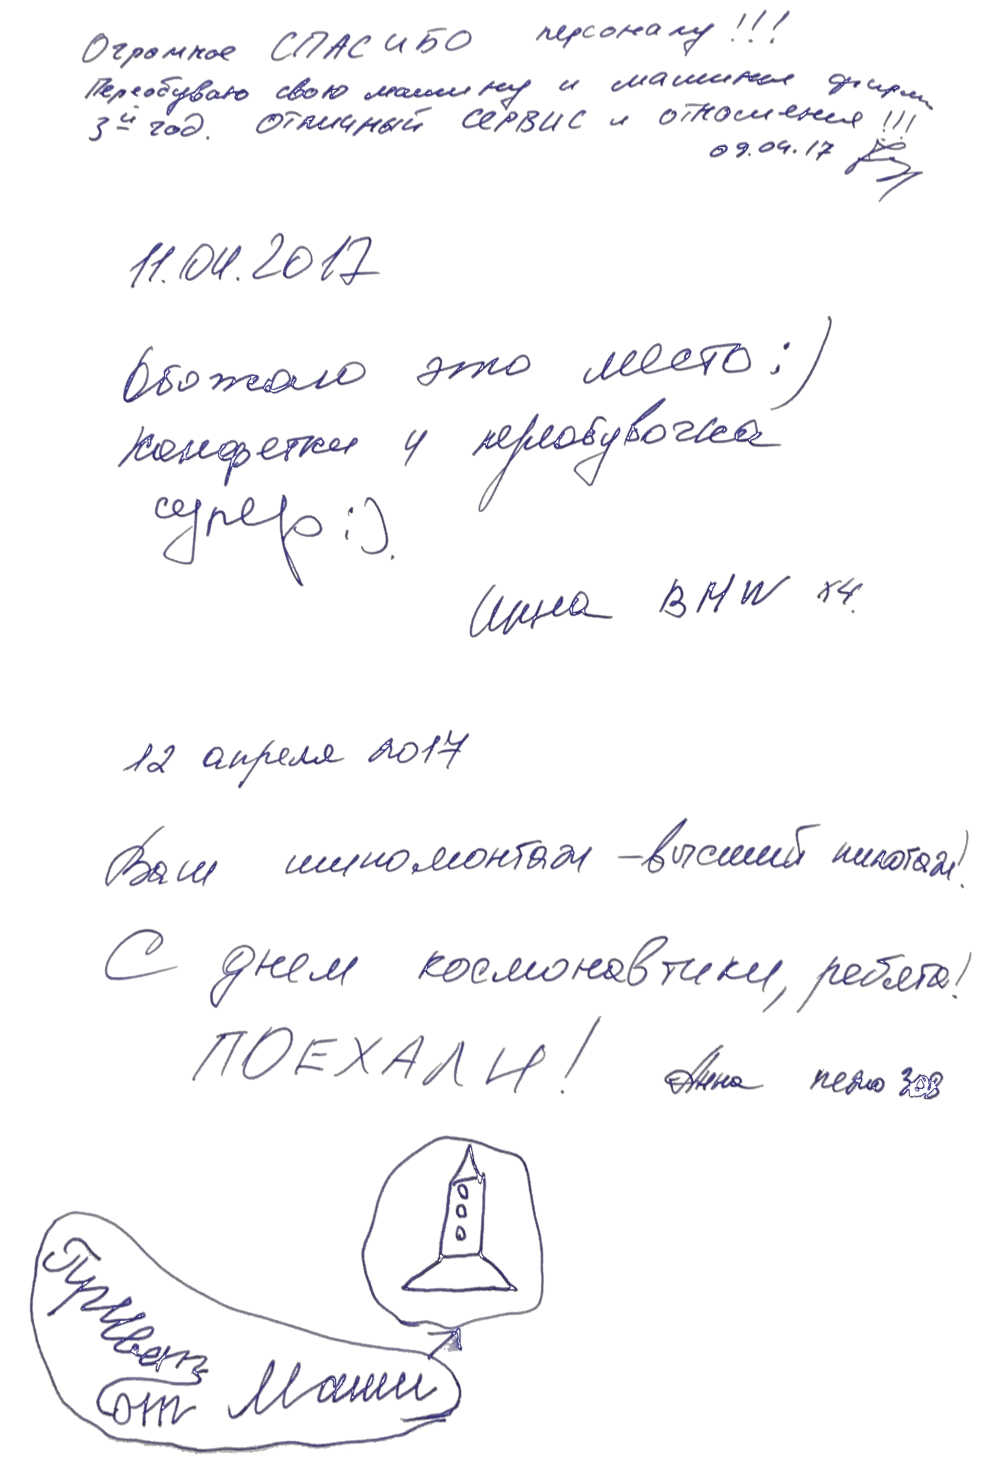 Огромное СПАСИБО персоналу!!!
Переобуваю свою машину и машины фирмы
3й год. Отличный СЕРВИС и отношение!!!
09.04.17
11.04.2017
Обожаю это место :)
Конфетки и переобувочка
супер :).
Инна BMW x4.
12 апреля 2017
Ваш шиномонтаж – высший пилотаж!
С днем космонавтики, ребята!
ПОЕХАЛИ!
Анна пежо 308
Привет
от Маши